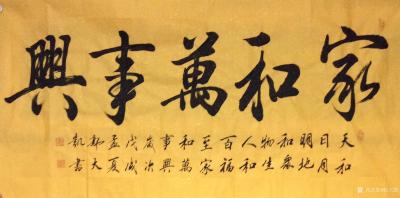 家和萬事興
天和
日月
明地
和衆
物生
人和
百福
至家
和萬
事興
歲次
戊戌
孟夏
鄭大
凱書